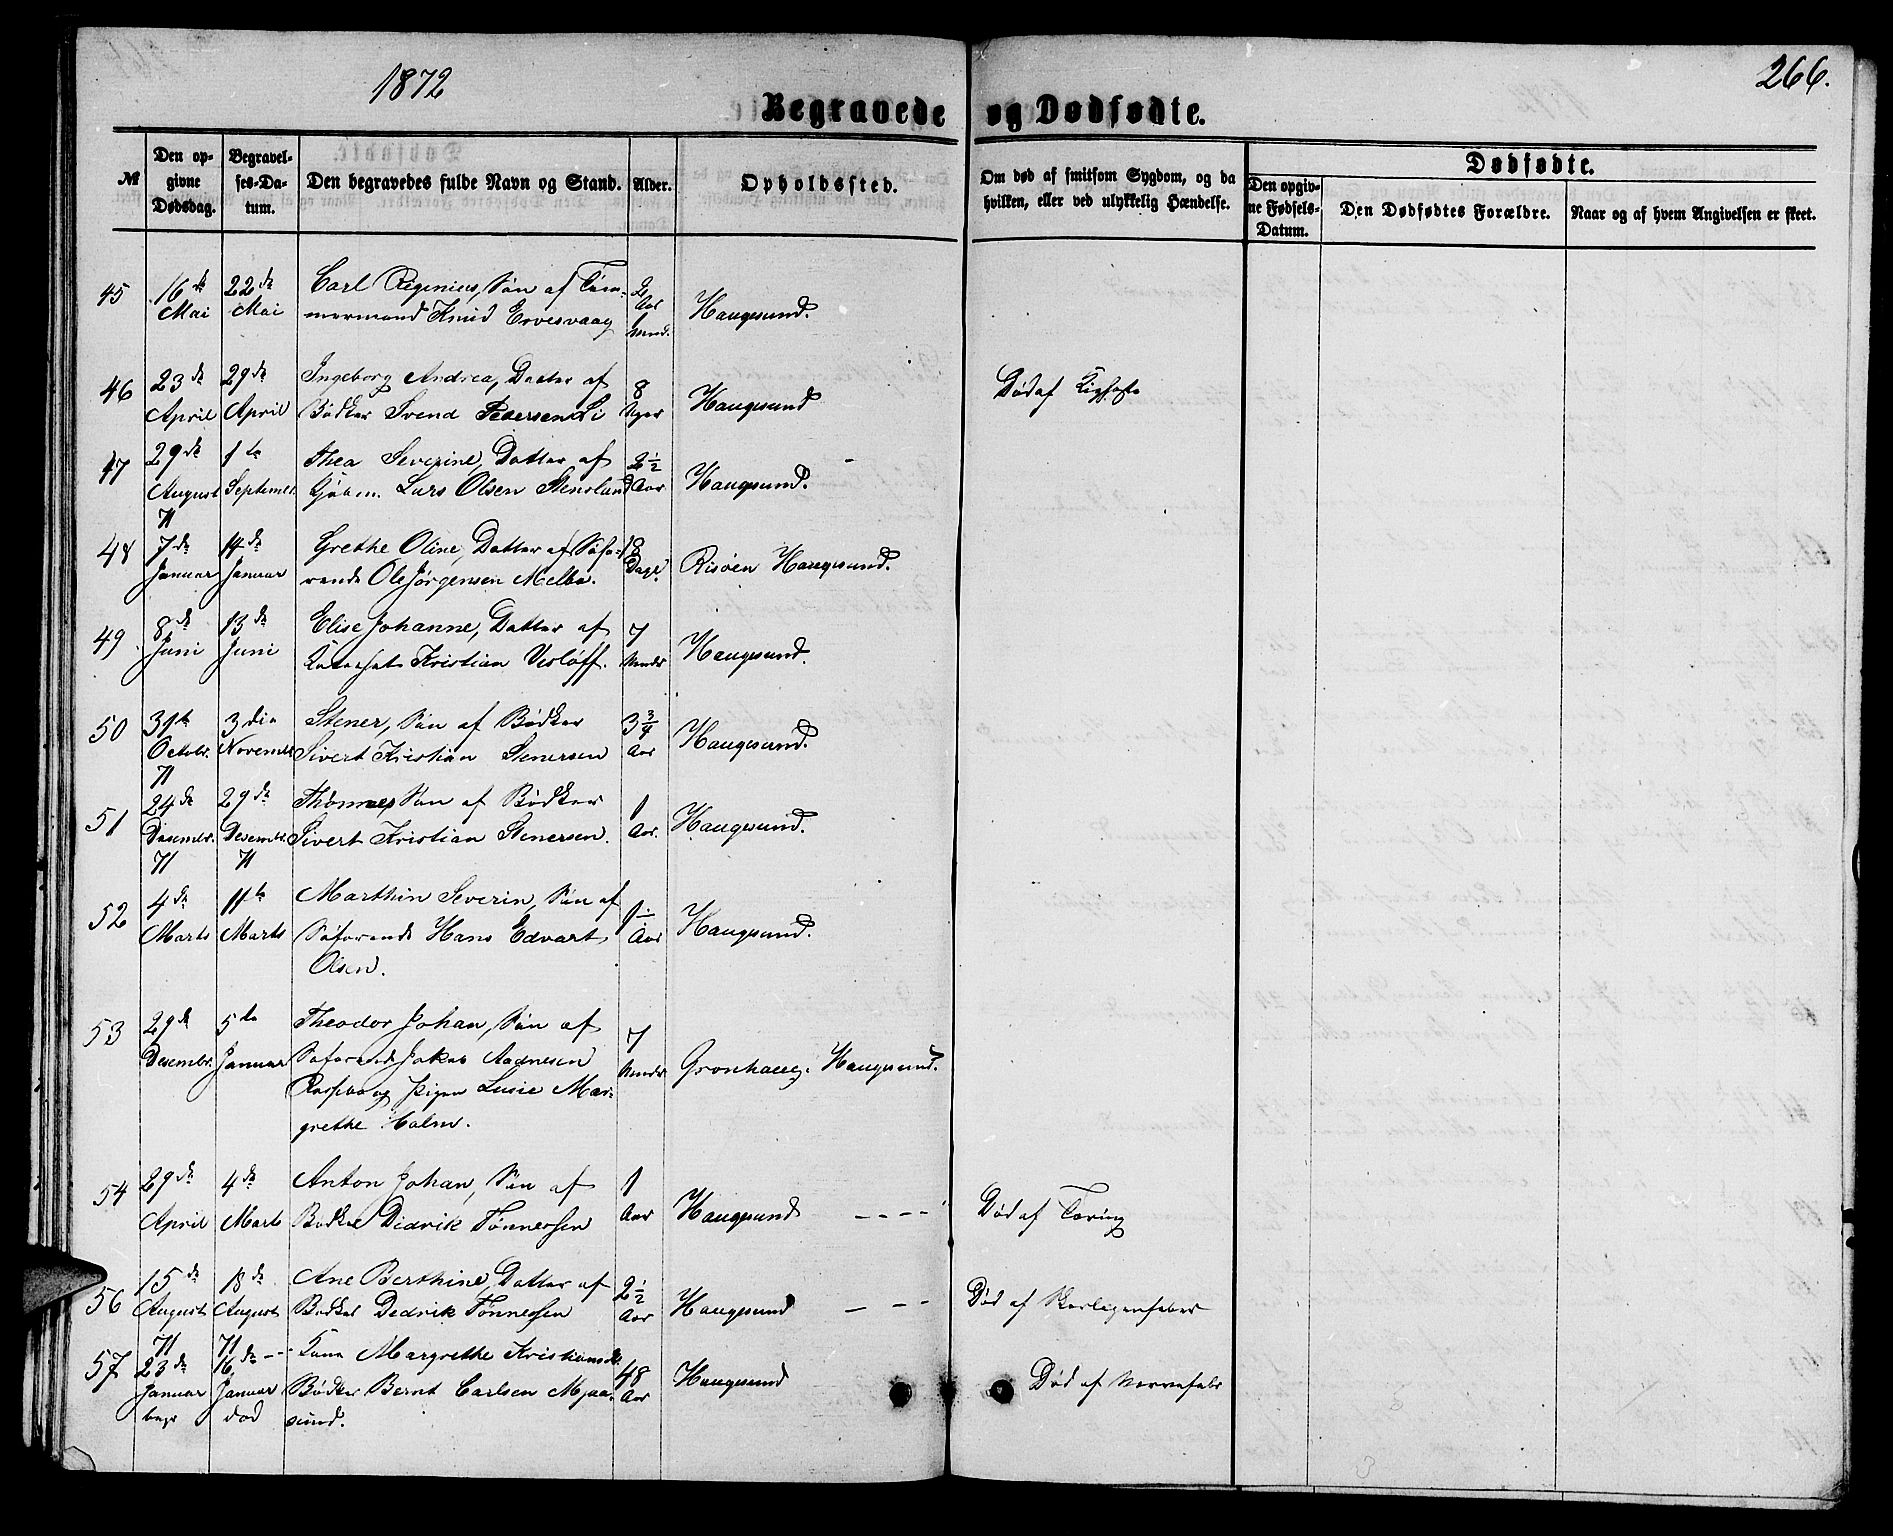 1872
266.
Begravede og Dødfødte.
№
Den op-
givne
Dødsdag.
Begravel-
ses-Da-
tum.
Den begravedes fulde Navn og Stand.
Alder.
Opholdssted.
Om død af smitsom Sygdom, og da
hvilken, eller ved ulykkelig Hændelse.
Dødfødte.
Den opgiv-
ne Fødsels-
Datum.
Den Dødfødtes Forældre.
Naar og af hvem Angivelsen er skeet.
45 16de 22de Carl Regenius, Søn af Töm- 2
Mai Mai mermand Knud Ervesvaag Aar Haugesund.
1 Mnd.
46 23de 29de Ingeborg Andrea, Datter af 8
April April Bødker Svend Pedersen Li Uger Haugesund Død af
47 29de 1te Thea Severine, Datter af 2½
August Septemer Lars Olsen Stensland Aar Haugesund.
71
48 7de 14de Grethe Oline, Datter af Søfa- 18
Januar Januar rende Ole Jørgensen Melbø. Dage. Risøen Haugesund.
49 8de 13de Elise Johanne, Datter af 7
Juni Juni Kristian Visløff. Mndr Haugesund.
50 31te 3die Stener, Søn af Bødker 3¾
Octobr. Novembr Sivert Kristian Stenersen Aar Haugesund.
71
51 24de 29de Thomas, Søn af Bødker 1
Desembr. Desembr. Sivert Kristian Stenersen. Aar. Haugesund.
71 71
52 4de 11te Marthin Severin, Søn af 1
Marts Marts Søfarende Hans Edvart Aar Haugesund.
Olsen.
53 29de 5te Theodor Johan, Søn af 7
Desembr. Januar Søfarende Jakob Aadnesen Mndr Grønhaug. Haugesund.
og Pigen Lusie Mar-
grethe Holm.
54 29de 4de Anton Johan, Søn af 1
April Marts Bødker Didrik Tønnessen Aar Haugesund - - - - Død af Tæring
56 15de 18de Ane Berthine, Datter af 2½
August August Bødker Dedrik Tønnessen Aar Haugesund - - - Død af Skarlagensfeber
71 71
57 23de 16de - - Margrethe Kristiansdtr. 48
Januar Januar Bødker Bernt Carlsen Mjaa- Aar Haugesund Død af Nervefeber
begr død sund.